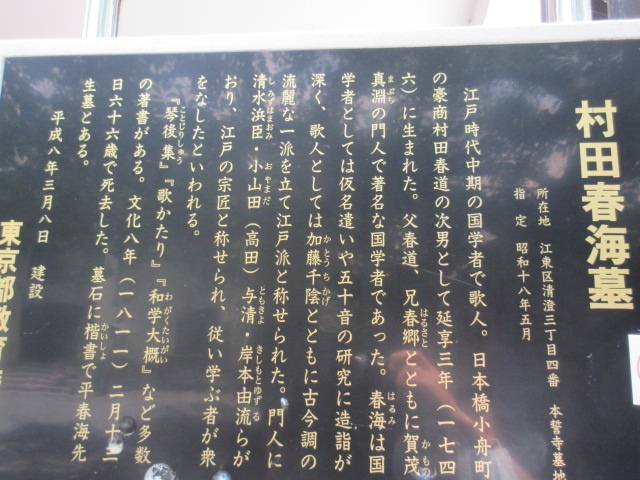 村田春海墓
所在地 江東区清澄三丁目四番 本誓寺墓地
指定 昭和十八年五月
江戸時代中期の国学者で歌人。日本橋小舟町
の豪商村田春道の次男として延享三年(一七四
六)に生まれた。父春道、兄春郷とともに賀茂
真淵の門人で著名な国学者であった。春海は国
学者としては仮名遣いや五十音の研究に造詣が
深く、歌人としては加藤千陰とともに古今調の
流麗な一派を立て江戸派と称せられた。門人に
清水浜臣・小山田(高田)与清・岸本由流らが
おり、江戸の宗匠と称せられ、従い学ぶ者が衆
をなしたといわれる。
『琴後集』『歌かたり』『和学大概』など多数
の著書がある。文化八年(一八一一)二月十三
日六十六歳で死去した。墓石に楷書で平春海先
生墓とある。
平成八年三月八日 建設
東京都教育